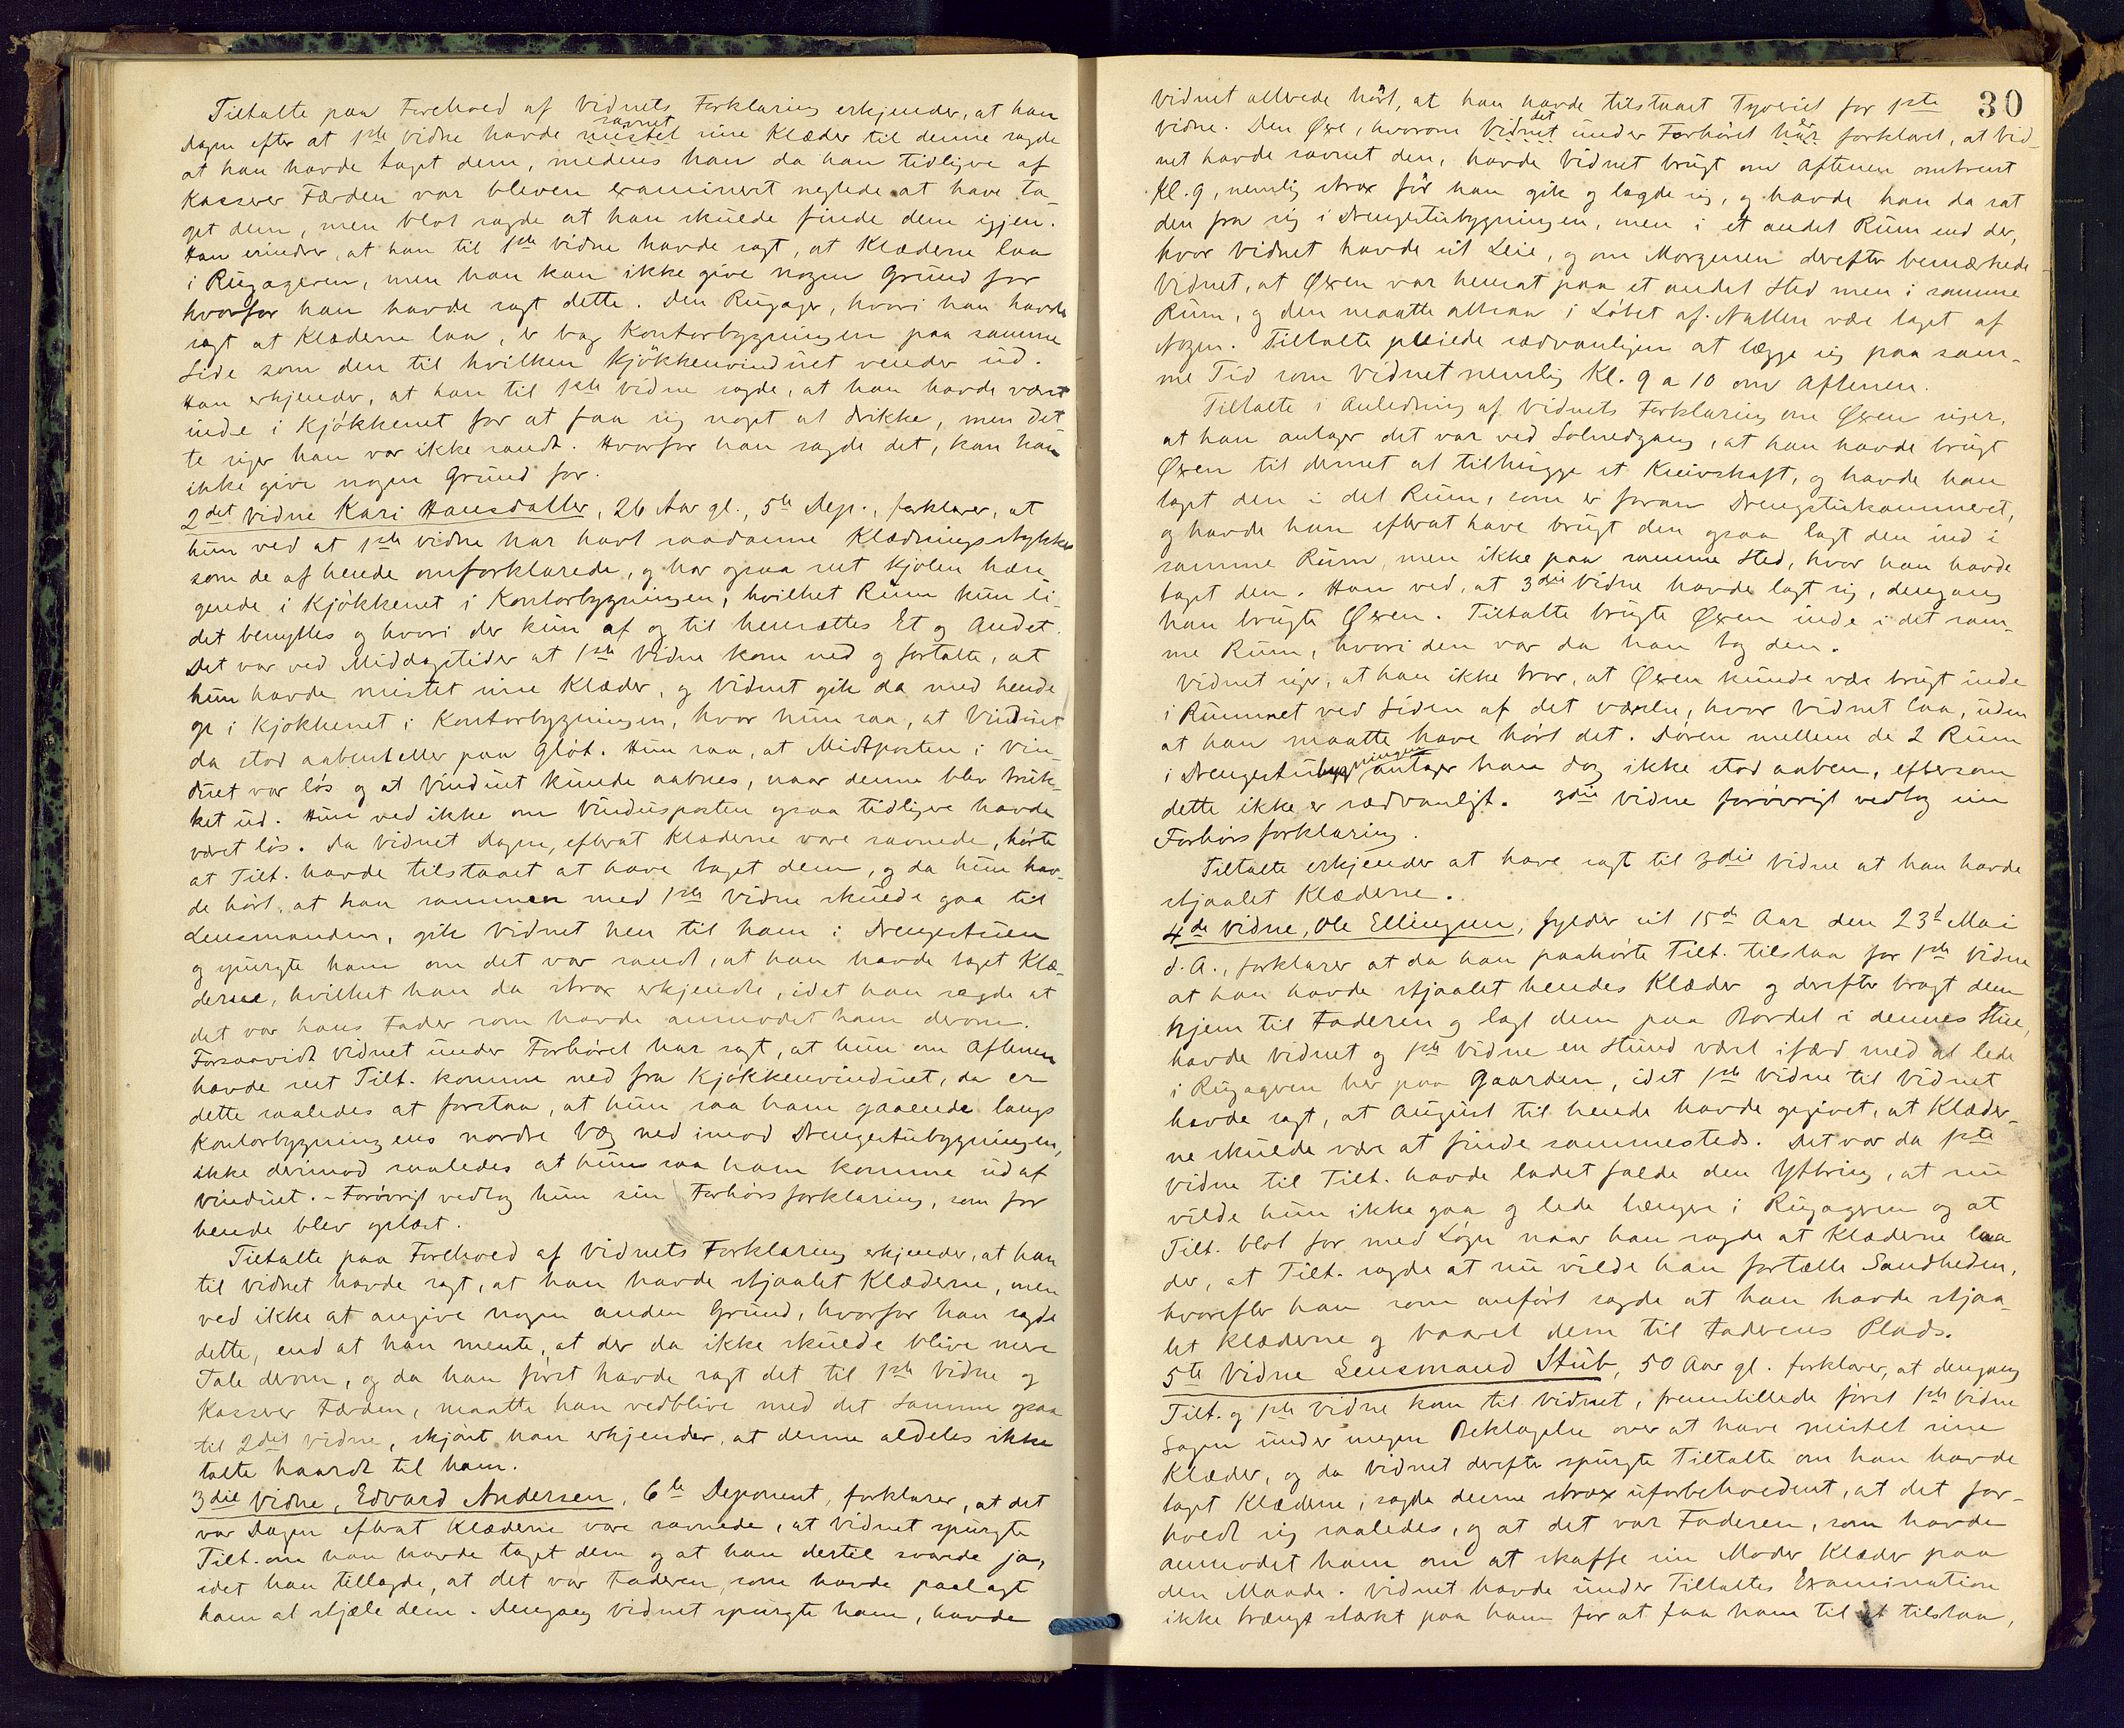 Tiltalte paa Forehold af Vidnets Forklaring erkjender, at han
Dagen efter at 1ste Vidne havde mistet savnet sine Klæder til denne sagde
at han havde taget dem, medens han da han tidligere af
Kasserer Færden var bleven examineret negtede at have ta-
get dem, men blot sagde at han skulde finde dem igjen.
Han erindrer, at han til 1ste Vidne havde sagt, at Klæderne laa
i Rugageren, men han kan ikke give nogen Grund for
hvorfor han havde sagt dette. Den Rugager, hvori han havde
sagt at Klæderne laa, er bag Kontorbygningen paa samme
Side som den til hvilken Kjøkkenvinduet vender ud.
Han erkjender, at han til 1ste Vidne sagde, at han havde været
inde i Kjøkkenet for at faa sig noget at drikke, men det-
te siger han var ikke sandt. Hvorfor han sagde det, kan han
ikke give nogen Grund for.
2det Vidne Kari Hansdatter, 26 Aar gl., 5te Dep., forklarer, at
hun ved at 1ste Vidne har havt saadanne Klædningsstykker
som de af hende omforklarede, og har ogsaa set Kjolen hæn-
gende i Kjøkkenet i Kontorbygningen, hvilket Rum kun li-
det benyttes og hvori der kun af og til hensættes Et og Andet.
Det var ved Middagstider at 1ste Vidne kom ned og fortalte, at
hun havde mistet sine Klæder, og Vidnet gik da med hende
op i Kjøkkenet i Kontorbygningen, hvor hun saa, at Vinduet
da stod aabent eller paa Gløt. Hun saa, at Midtposten i Vin-
duet var løs og at Vinduet kunde aabnes, naar denne blev truk-
ket ud. Hun ved ikke om Vindusposten ogsaa tidligere havde
været løs. Da Vidnet Dagen, efterat Klæderne vare savnede, hørte
at Tilt. havde tilstaaet at have taget dem, og da hun hav-
de hørt, at han sammen med 1ste Vidne skulde gaa til
Lensmanden, gik Vidnet hen til ham i Drengestuen
og spurgte ham om det var sandt, at han havde taget Klæ-
derne, hvilket han da strax erkjendte, idet han sagde at
det var hans Fader som havde anmodet ham derom.
Forsaavidt Vidnet under Forhøret har sagt, at hun om Aftenen
havde set Tilt. komme ned fra Kjøkkenvinduet, da er
dette saaledes at forstaa, at hun saa ham gaaende langs
Kontorbygningens nordre Væg ned imod Drengestubygningen,
ikke derimod saaledes at hun saa ham komme ud af
Vinduet. - Forøvrigt vedtog hun sin Forhørsforklaring, som for
hende blev oplæst.
Tiltalte paa Forehold af Vidnets Forklaring erkjender, at han
til Vidnet havde sagt, at han havde stjaalet Klæderne, men
ved ikke at angive nogen anden Grund, hvorfor han sagde
dette, end at han mente, at der da ikke skulde blive mere
Tale derom, og da han først havde sagt det til 1ste Vidne og
Kasserer Færden, maatte han vedblive med det Samme ogsaa
til 2det Vidne, skjønt han erkjender, at denne aldeles ikke
talte haardt til ham.
3die Vidne, Edvard Andersen, 6te Deponent, forklarer, at det
var Dagen efterat Klæderne vare savnede, at Vidnet spurgte
Tilt. om han havde taget dem og at han dertil svarede ja,
idet han tillagde, at det var Faderen, som havde paalagt
ham at stjæle dem. Dengang Vidnet spurgte ham, havde
30
Vidnet allerede hørt, at han havde tilstaaet Tyveriet for 1ste
Vidne. Den Øxe, hvorom Vidnet det under Forhøret har er forklaret, at Vid-
net havde savnet den, havde Vidnet brugt om Aftenen omtrent
Kl. 9, nemlig strax før han gik og lagde sig, og havde han da sat
den fra sig i Drengestubygningen, men i et andet Rum end der,
hvor Vidnet havde sit Leie, og om Morgenen derefter bemærkede
Vidnet, at Øxen var hensat paa et andet Sted men i samme
Rum, og den maatte altsaa i Løbet af Natten være taget af
Nogen. Tiltalte pleiede sædvanligen at lægge sig paa sam-
me Tid som Vidnet nemlig Kl. 9 a 10 om Aftenen.
Tiltalte i Anledning af Vidnets Forklaring om Øxen siger,
at han antager det var ved Solnedgang, at han havde brugt
Øxen til dermed at tilhugge et Knivskaft, og havde han
taget den i det Rum, som er foran Drengestukammeret,
og havde han efterat have brugt den ogsaa lagt den ind i
samme Rum, men ikke paa samme Sted, hvor han havde
taget den. Han ved, at 3die Vidne havde lagt sig, dengang
han brugte Øxen. Tiltalte brugte Øxen inde i det sam-
me Rum, hvori den var da han tog den.
Vidnet siger, at han ikke tror, at Øxen kunde være brugt inde
i Rummet ved Siden af det Værelse, hvor Vidnet laa, uden
at han maatte have hørt det. Døren mellem de 2 Rum
i Drengestubygningen antager han dog ikke stod aaben, eftersom
dette ikke er sædvanligt. 3die Vidne forøvrigt vedtog sin
Forhørsforklaring.
Tiltalte erkjender at have sagt til 3die Vidne at han havde
stjaalet Klæderne.
4de Vidne, Ole Ellingsen, fylder sit 15de Aar den 23d Mai
d. A., forklarer at da han paahørte Tilt. tilstaa for 1ste Vidne
at han havde stjaalet hendes Klæder og derefter bragt dem
hjem til Faderen og lagt dem paa Bordet i dennes Stue,
havde Vidnet og 1ste Vidne en Stund været ifærd med at lede
i Rugageren her paa Gaarden, idet 1ste Vidne til Vidnet
havde sagt, at August til hende havde opgivet, at Klæder-
ne skulde være at finde sammesteds. Det var da 1ste
Vidne til Tilt. havde ladet falde den Yttring, at nu
vilde hun ikke gaa og lede længer i Rugageren og at
Tilt. blot for med Løgn naar han sagde at Klæderne laa
der, at Tilt. sagde at nu vilde han fortælle Sandheden,
hvorefter han som anført sagde at han havde stjaa-
let Klæderne og baaret dem til Faderens Plads.
5te Vidne Lensmand Stub, 50 Aar gl. forklarer, at dengang
Tilt. og 1ste Vidne kom til Vidnet, fremstillede først 1ste Vidne
Sagen under megen Beklagelse over at have mistet sine
Klæder, og da Vidnet derefter spurgte Tiltalte om han havde
taget Klæderne, sagde denne strax uforbeholdent, at det for-
holdt sig saaledes, og at det var Faderen, som havde
anmodet ham om at skaffe sin Moder Klæder paa
den Maade. Vidnet havde under Tiltaltes Examination
ikke trængt stærkt paa ham for at faa ham til at tilstaa,